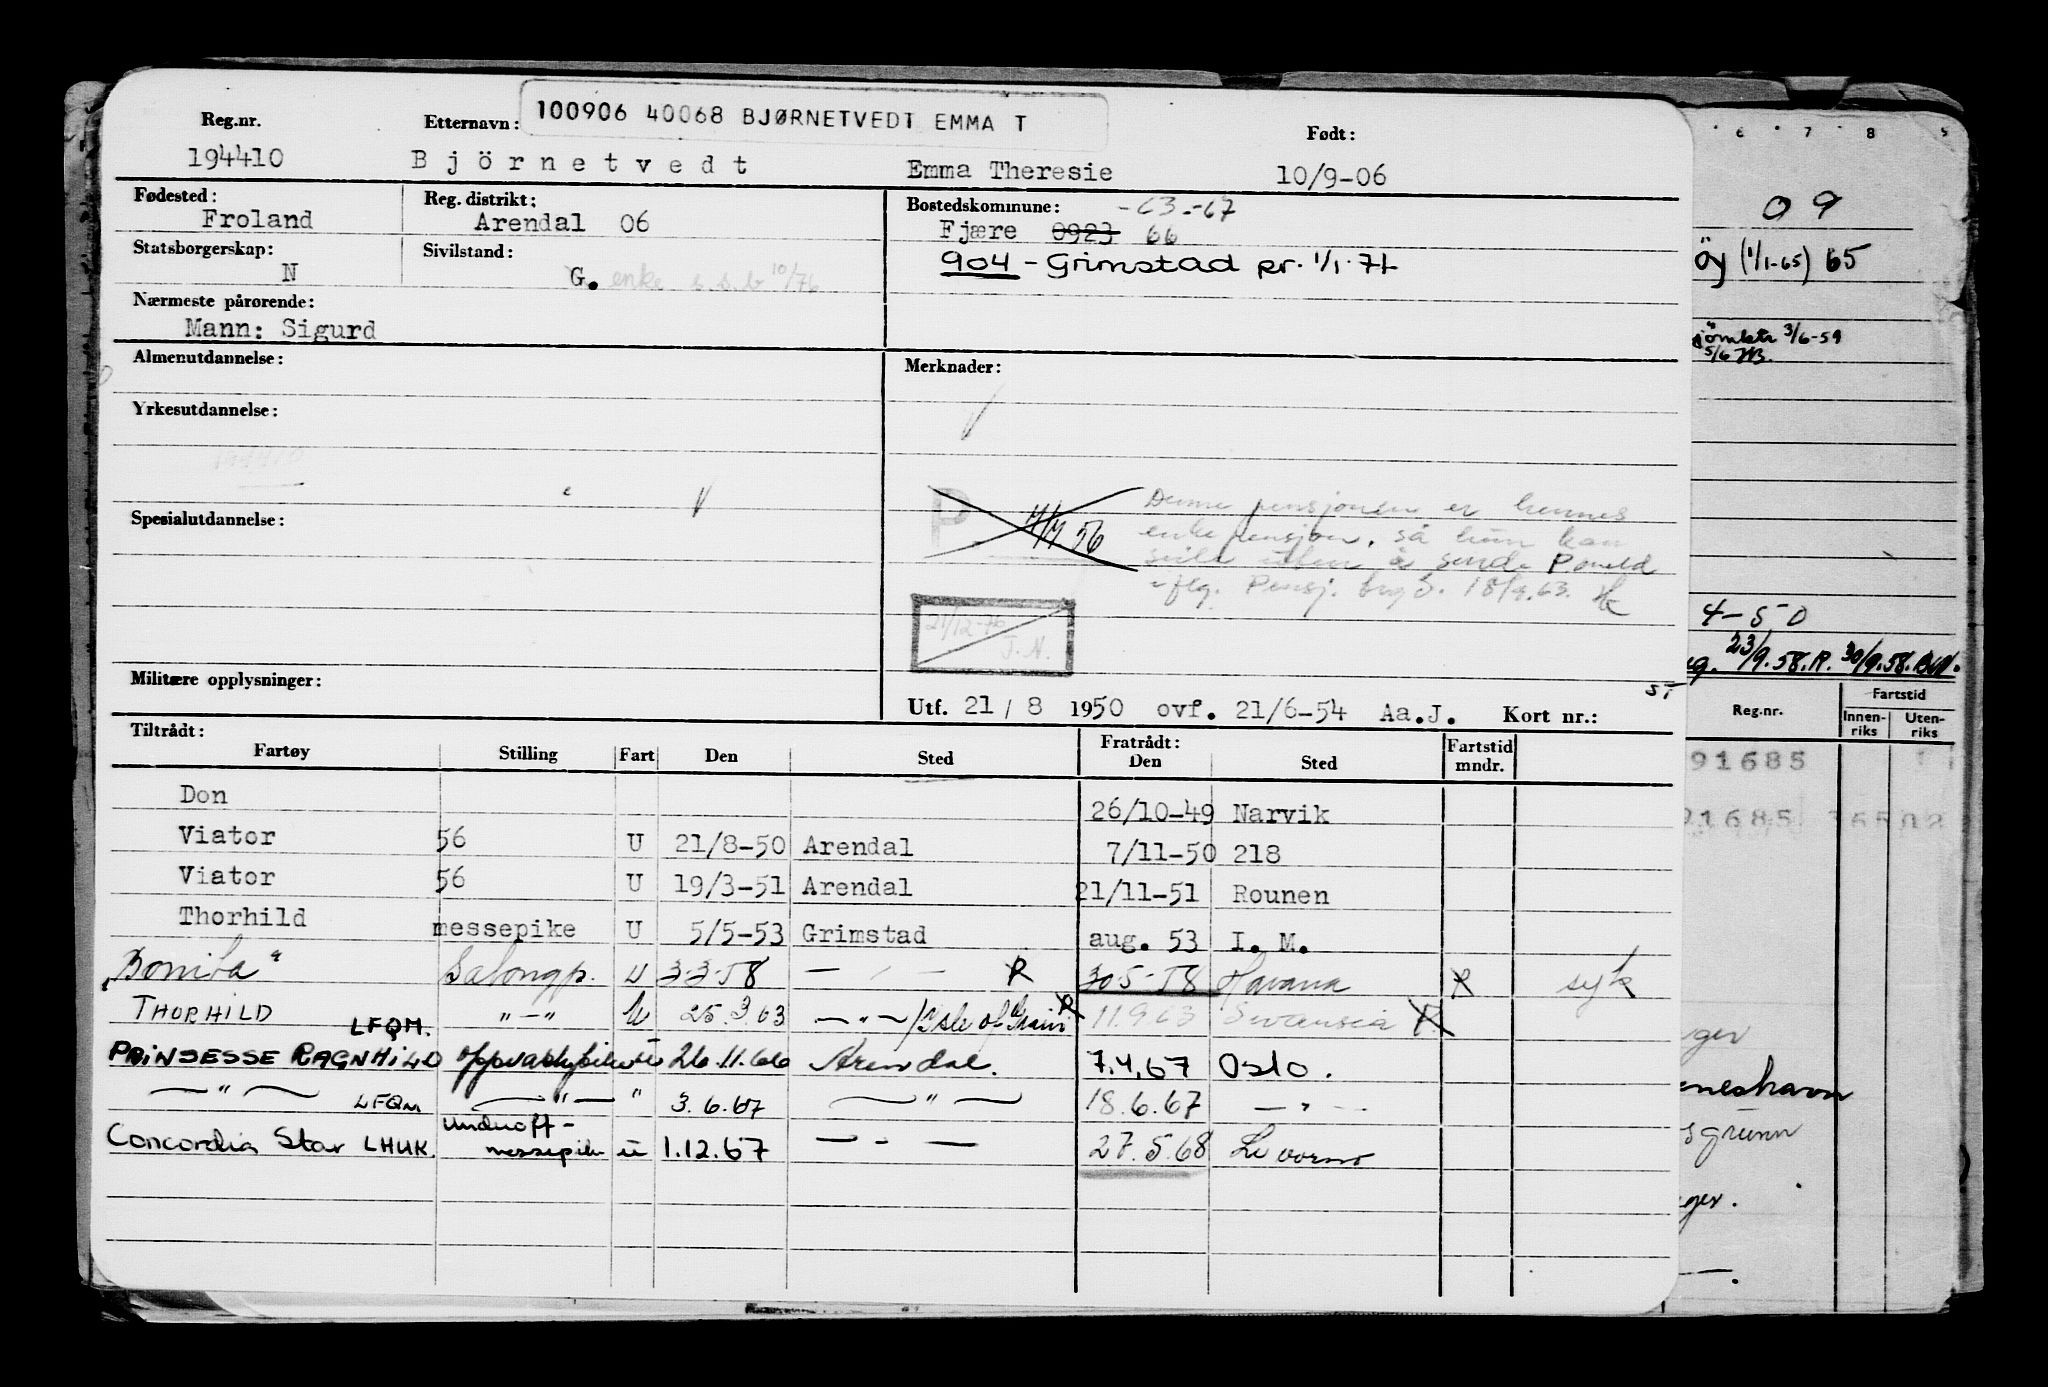 100906 40068 BJØRNETVEDT EMMA T
Reg.nr. Etternavn: Født:
194410 Björnetvedt Emma Theresie 10/9-06
Fødested: Reg. distrikt: Bostedskommune: -63.-67
Froland Arendal 06 Fjære 0923 66
Statsborgerskap: Sivilstand: 904 - Grimstad pr. 1/1-71
N G. enke s.s.b 10/76
Nærmeste pårørende:
Mann: Sigurd
Almenutdannelse: Merknader:
Yrkesutdannelse:
194410
Denne pensjonen er hennes
P 4/4 56 enkepensjon, så hun kan
Spesialutdannelse:
seile uten å sende P meld
flg. Pensj. 18/9.63.
21/12-76
J.N.
Militære opplysninger:
Utf. 21/8 1950 ovf. 21/6-54 Aa.J. Kort nr.:
Tiltrådt: Fratrådt:
Fartøy Stilling Fart Den Sted Den Sted Fartstid mndr.
Don 26/10-49 Narvik
Viator 56 U 21/8-50 Arendal 7/11-50 218
Viator 56 U 19/3-51 Arendal 21/11-51 Rounen
Thorhild messepike U 5/5-53 Grimstad aug. 53 I. M.
"Bonita" Salongp. U 3-3-58 — " — R 30-5-58 Havana R syk
THORHILD — " — U 25.3.63 — " — / Isle of Grain R 11.9.63 Swansea R
LFQM.
PRINSESSE RAGNHILD oppvaskpike u 26.11.66 Arendal. 7.4.67 Oslo.
— " — LFQM — " — " 3.6.67 — " — 18.6.67 — " —
Concordia Star LHUK. underoff-
messepike u 1.12.67 — " — 27.5.68 Livorno
6 7 8
09
öy (1/1-65) 65
3/6-59
5/6
4-50
23/9.58.R. 30/9.58.
Reg.nr. Fartstid
Innen-
riks
Uten-
riks
91685
91685
neshavn
sgrunn
ger.